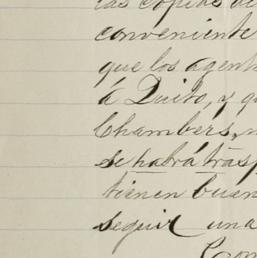 las copias de
conveniente
que los agent
á Quito, y qu
Chambers,
se habrá trasp
tienen buen
seguir una
Com